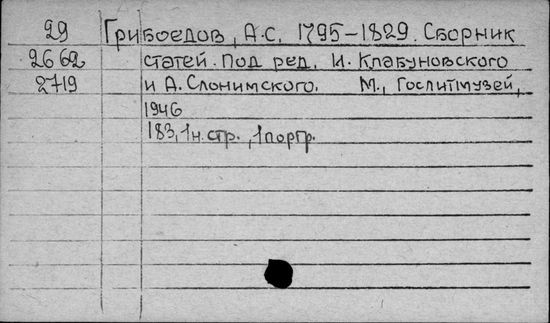 29 Грибоедов, А.С. 1795-1829. Сборник
2662 статей. Под ред. И. Клабуновского
2719 и А. Слонимского. М., Гослитмузей,
1946
183, 1 н. стр., 1 портр.